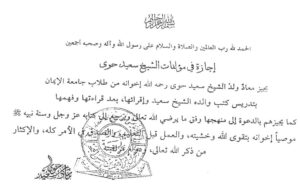 بسم الله الرحمن الرحيم
الحمد لله رب العالمين والصلاة والسلام على رسول الله وآله وصحبه أجمعين
إجازة في مؤلفات الشيخ سعيد حوى
يجيز معاذ ولد الشيخ سعيد حوى رحمه الله إخوانه من طلاب جامعة الإيمان
بتدريس كتب والده الشيخ سعيد وإقرائها، بعد قراءتها وفهمها
كما يجيزهم بالدعوة إلى منهجها وفق ما يرضي الله تعالى ويرجع إلى كتابه عز وجل وسنة نبيه ﷺ
موصياً إخوانه بتقوى الله وخشيته، والعمل قبل التعليم، والصدق في الأمر كله، والإكثار
من ذكر الله تعالى، ودوام مراقبته